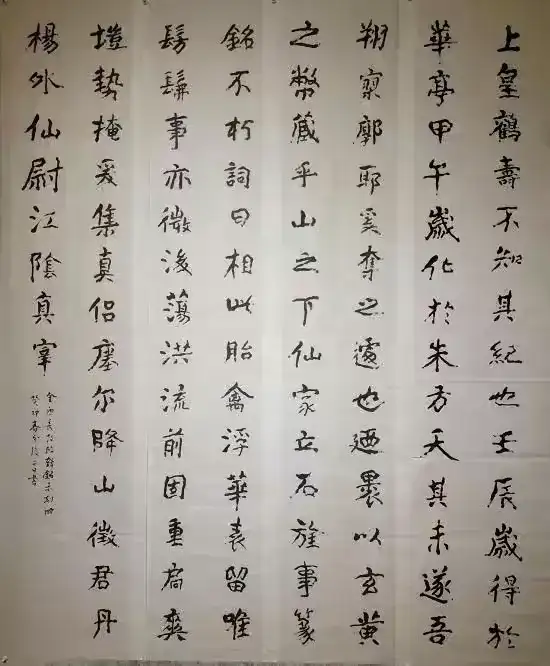 上皇鶴壽不知其紀也壬辰歲得於
華亭甲午歲化於朱方天其未遂吾
翔寥廓耶奚奪之遽也迺裹以玄黃
之幣藏乎山之下仙家立石旌事篆
銘不朽詞曰相此胎禽浮華表留唯
髣髴事亦微後蕩洪流前固重扃爽
塏勢掩爰集真侶瘞尔降山徵君丹
楊外仙尉江陰真宰
癸卯春分後日書